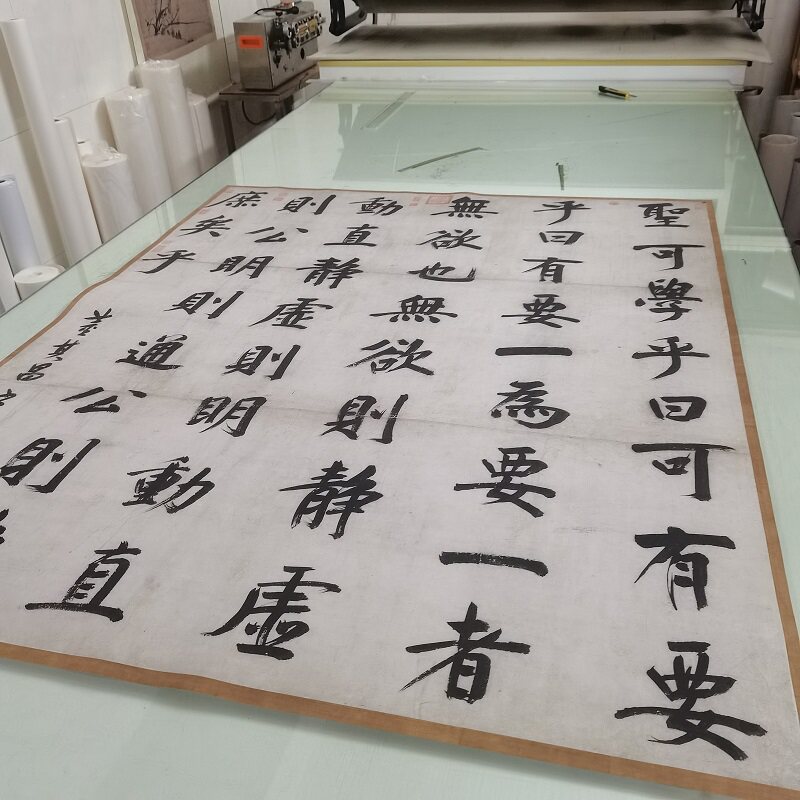 聖可學乎曰可有要
乎曰有要一為要一者
無欲也無欲則靜虛
動直靜虛則明動直
則公明則通公則
庶矣乎
董其昌